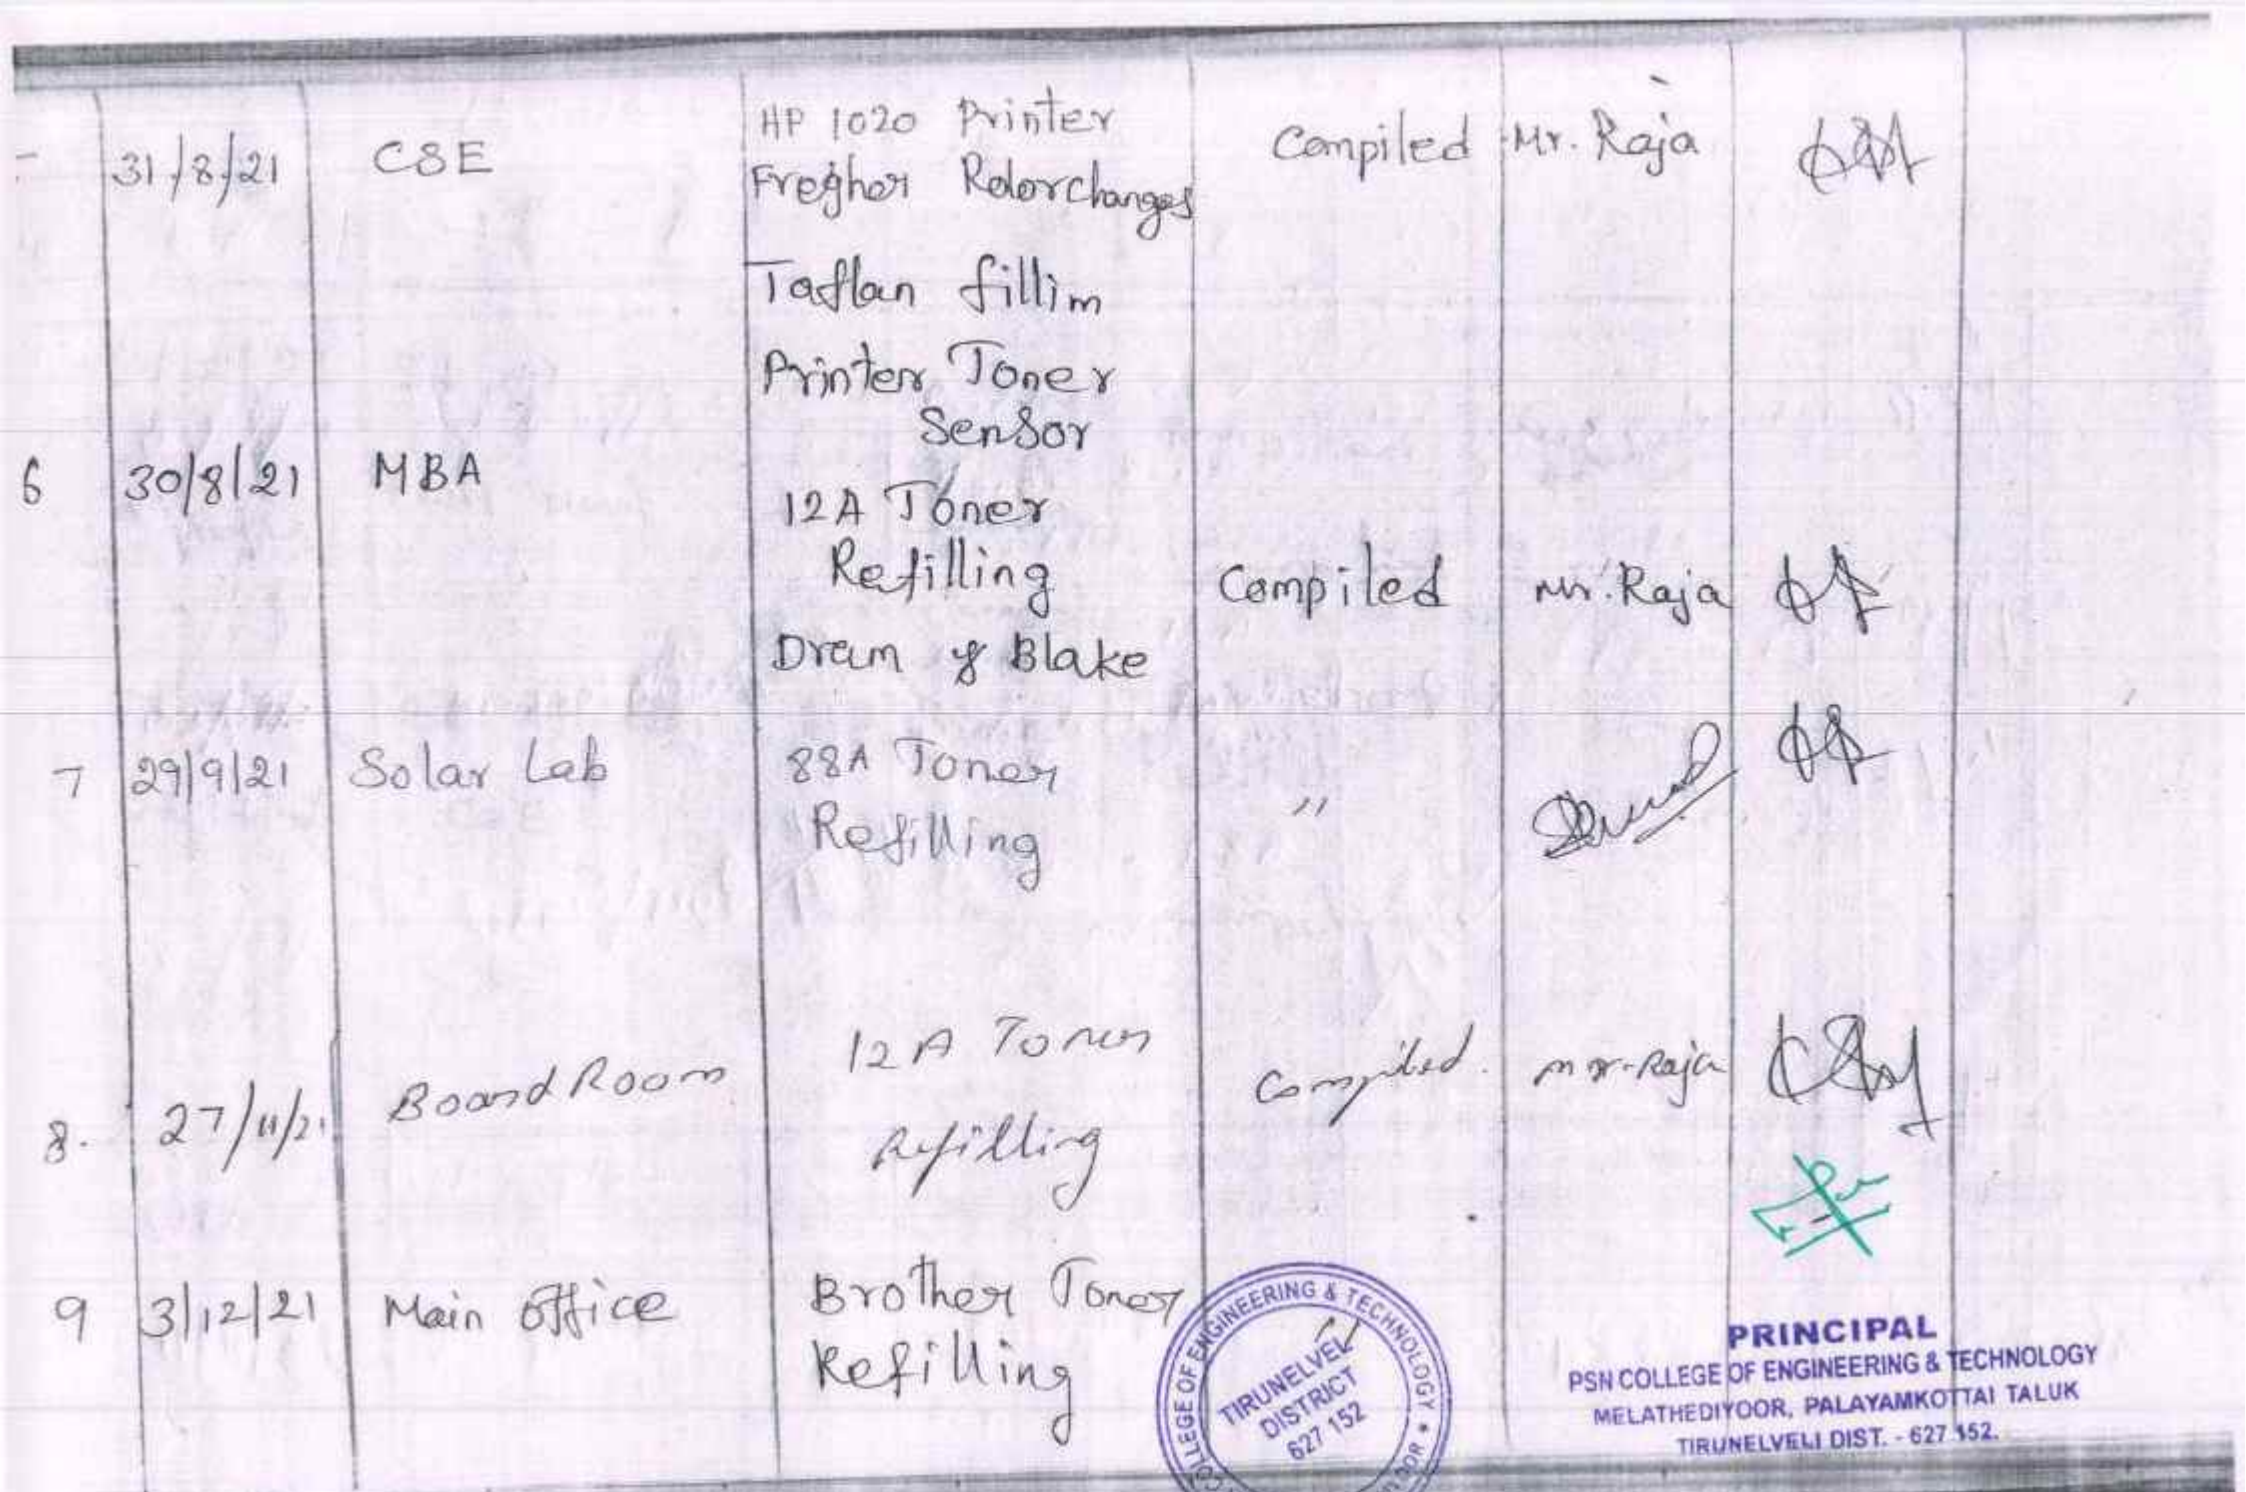 31/8/21 CSE HP 1020 Printer Compiled Mr. Raja
Fregher Rolorchanges
Taflan fillim
Printer Toner
Sensor
6 30/8/21 MBA 12A Toner
Refilling Compiled Mr. Raja
Dram & Blake
7 29/9/21 Solar Lab 88A Toner "
Refilling
8. 27/11/21 Board Room 12A Toner Compiled. Mr. Raja
Refilling
9 3/12/21 Main office Brother Toner "
Refilling
COLLEGE OF ENGINEERING & TECHNOLOGY
TIRUNELVELI
DISTRICT
627 152
PRINCIPAL
PSN COLLEGE OF ENGINEERING & TECHNOLOGY
MELATHEDIYOOR, PALAYAMKOTTAI TALUK
TIRUNELVELI DIST. - 627 152.